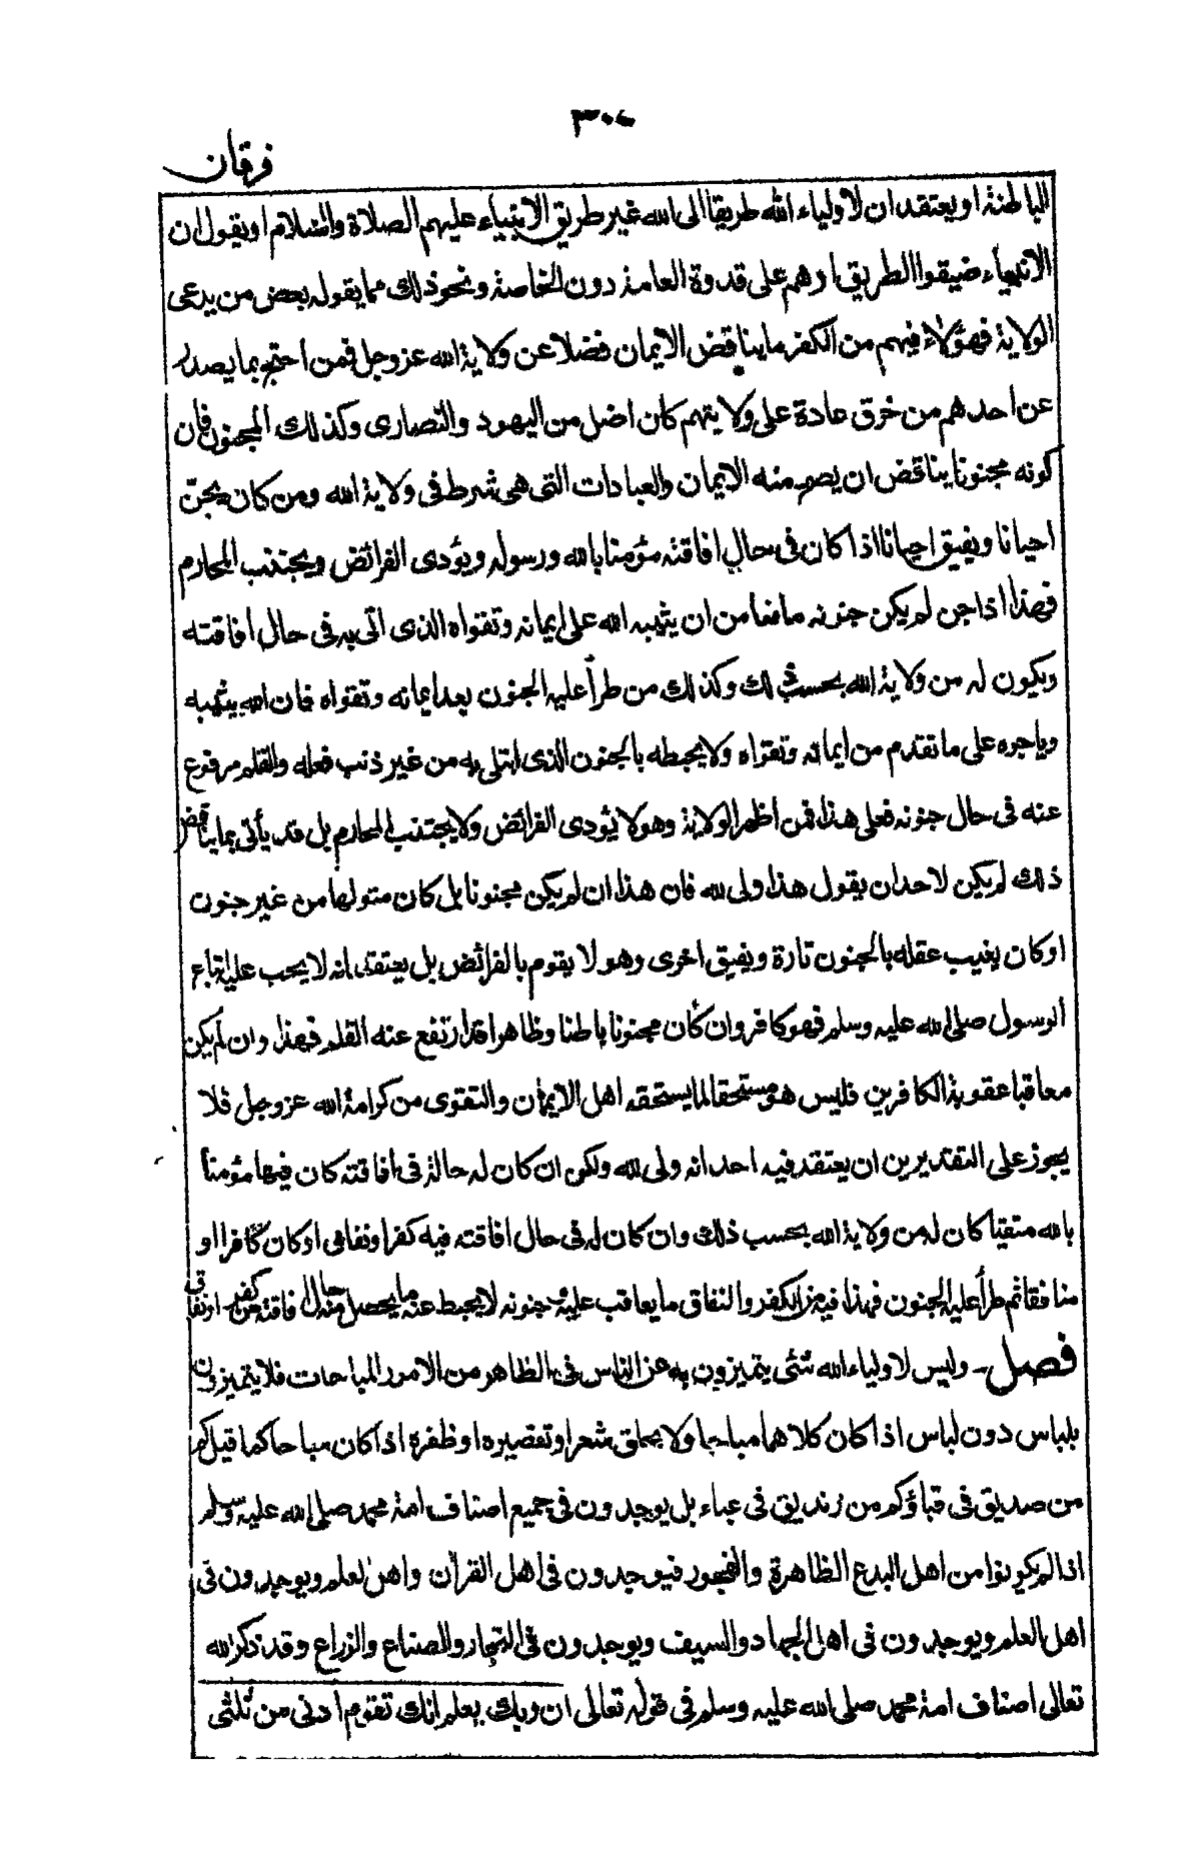 ٣٠٠
فرقان
الباطنة او يعتقد ان لاولياء الله طريقا الى الله غير طريق الانبياء عليهم الصلاة والسلام او يقول ان
الانبياء ضيقوا الطريق او هم على قدوة العامة دون الخاصة ونحو ذلك مما يقوله بعض من يدعى
الولاية فهؤلاء فيهم من الكفر ما يناقض الايمان فضلا عن ولاية الله عز وجل فمن احتج بما يصدر
عن احدهم من خرق عادة على ولايتهم كان اضل من اليهود والنصارى وكذلك المجنون فان
كونه مجنونا يناقض ان يصح منه الايمان والعبادات التى هى شرط فى ولاية الله ومن كان يجن
احيانا ويفيق احيانا اذا كان فى حال افاقته مؤمنا بالله ورسوله ويؤدى الفرائض ويجتنب المحارم
فهذا اذا جن لم يكن جنونه مانعا من ان يثيبه الله على ايمانه وتقواه الذى اتى به فى حال افاقته
ويكون له من ولاية الله بحسب ذلك وكذلك من طرأ عليه الجنون بعد ايمانه وتقواه فان الله يثيبه
وياجره على ما تقدم من ايمانه وتقواه ولا يحبطه بالجنون الذى ابتلى به من غير ذنب فعله والقلم مرفوع
عنه فى حال جنونه فعلى هذا فمن اظهر الولاية وهو لا يؤدى الفرائض ولا يجتنب المحارم بل قد يأتى بما يناقض
ذلك لم يكن لاحد ان يقول هذا ولى لله فان هذا ان لم يكن مجنونا بل كان متولها من غير جنون
او كان يغيب عقله بالجنون تارة ويفيق اخرى وهو لا يقوم بالفرائض بل يعتقد انه لا يجب عليه اتباع
الرسول صلى الله عليه وسلم فهو كافر وان كان مجنونا باطنا وظاهرا قد ارتفع عنه القلم فهذا وان لم يكن
معاقبا عقوبة الكافرين فليس هو مستحقا لما يستحقه اهل الايمان والتقوى من كرامة الله عز وجل فلا
يجوز على التقديرين ان يعتقد فيه احد انه ولى لله ولكن ان كان له حالة فى افاقته كان فيها مؤمنا
بالله متقيا كان له من ولاية الله بحسب ذلك وان كان له فى حال افاقته فيه كفر او نفاق او كان كافرا او
منافقا ثم طرأ عليه الجنون فهذا فيه من الكفر والنفاق ما يعاقب عليه وجنونه لا يحبط عنه ما يحصل منه حال افاقته من كفر او نفاق
فصل - وليس لاولياء الله شئى يتميزون به عن الناس فى الظاهر من الامور المباحات فلا يتميزون
بلباس دون لباس اذا كان كلاهما مباحا ولا بحلق شعر او تقصيره او ظفره اذا كان مباحا كما قيل كم
من صديق فى قباء وكم من زنديق فى عباء بل يوجدون فى جميع اصناف امة محمد صلى الله عليه وسلم
اذا لم يكونوا من اهل البدع الظاهرة والفجور فيوجدون فى اهل القرآن واهل العلم ويوجدون فى
اهل العلم ويوجدون فى اهل الجهاد والسيف ويوجدون فى التجار والصناع والزراع وقد ذكر الله
تعالى اصناف امة محمد صلى الله عليه وسلم فى قوله تعالى ان ربك يعلم انك تقوم ادنى من ثلثى